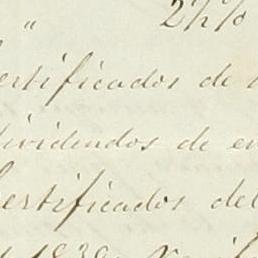 " 2½%
ertificados de
dividendos de
Certificados del
1839